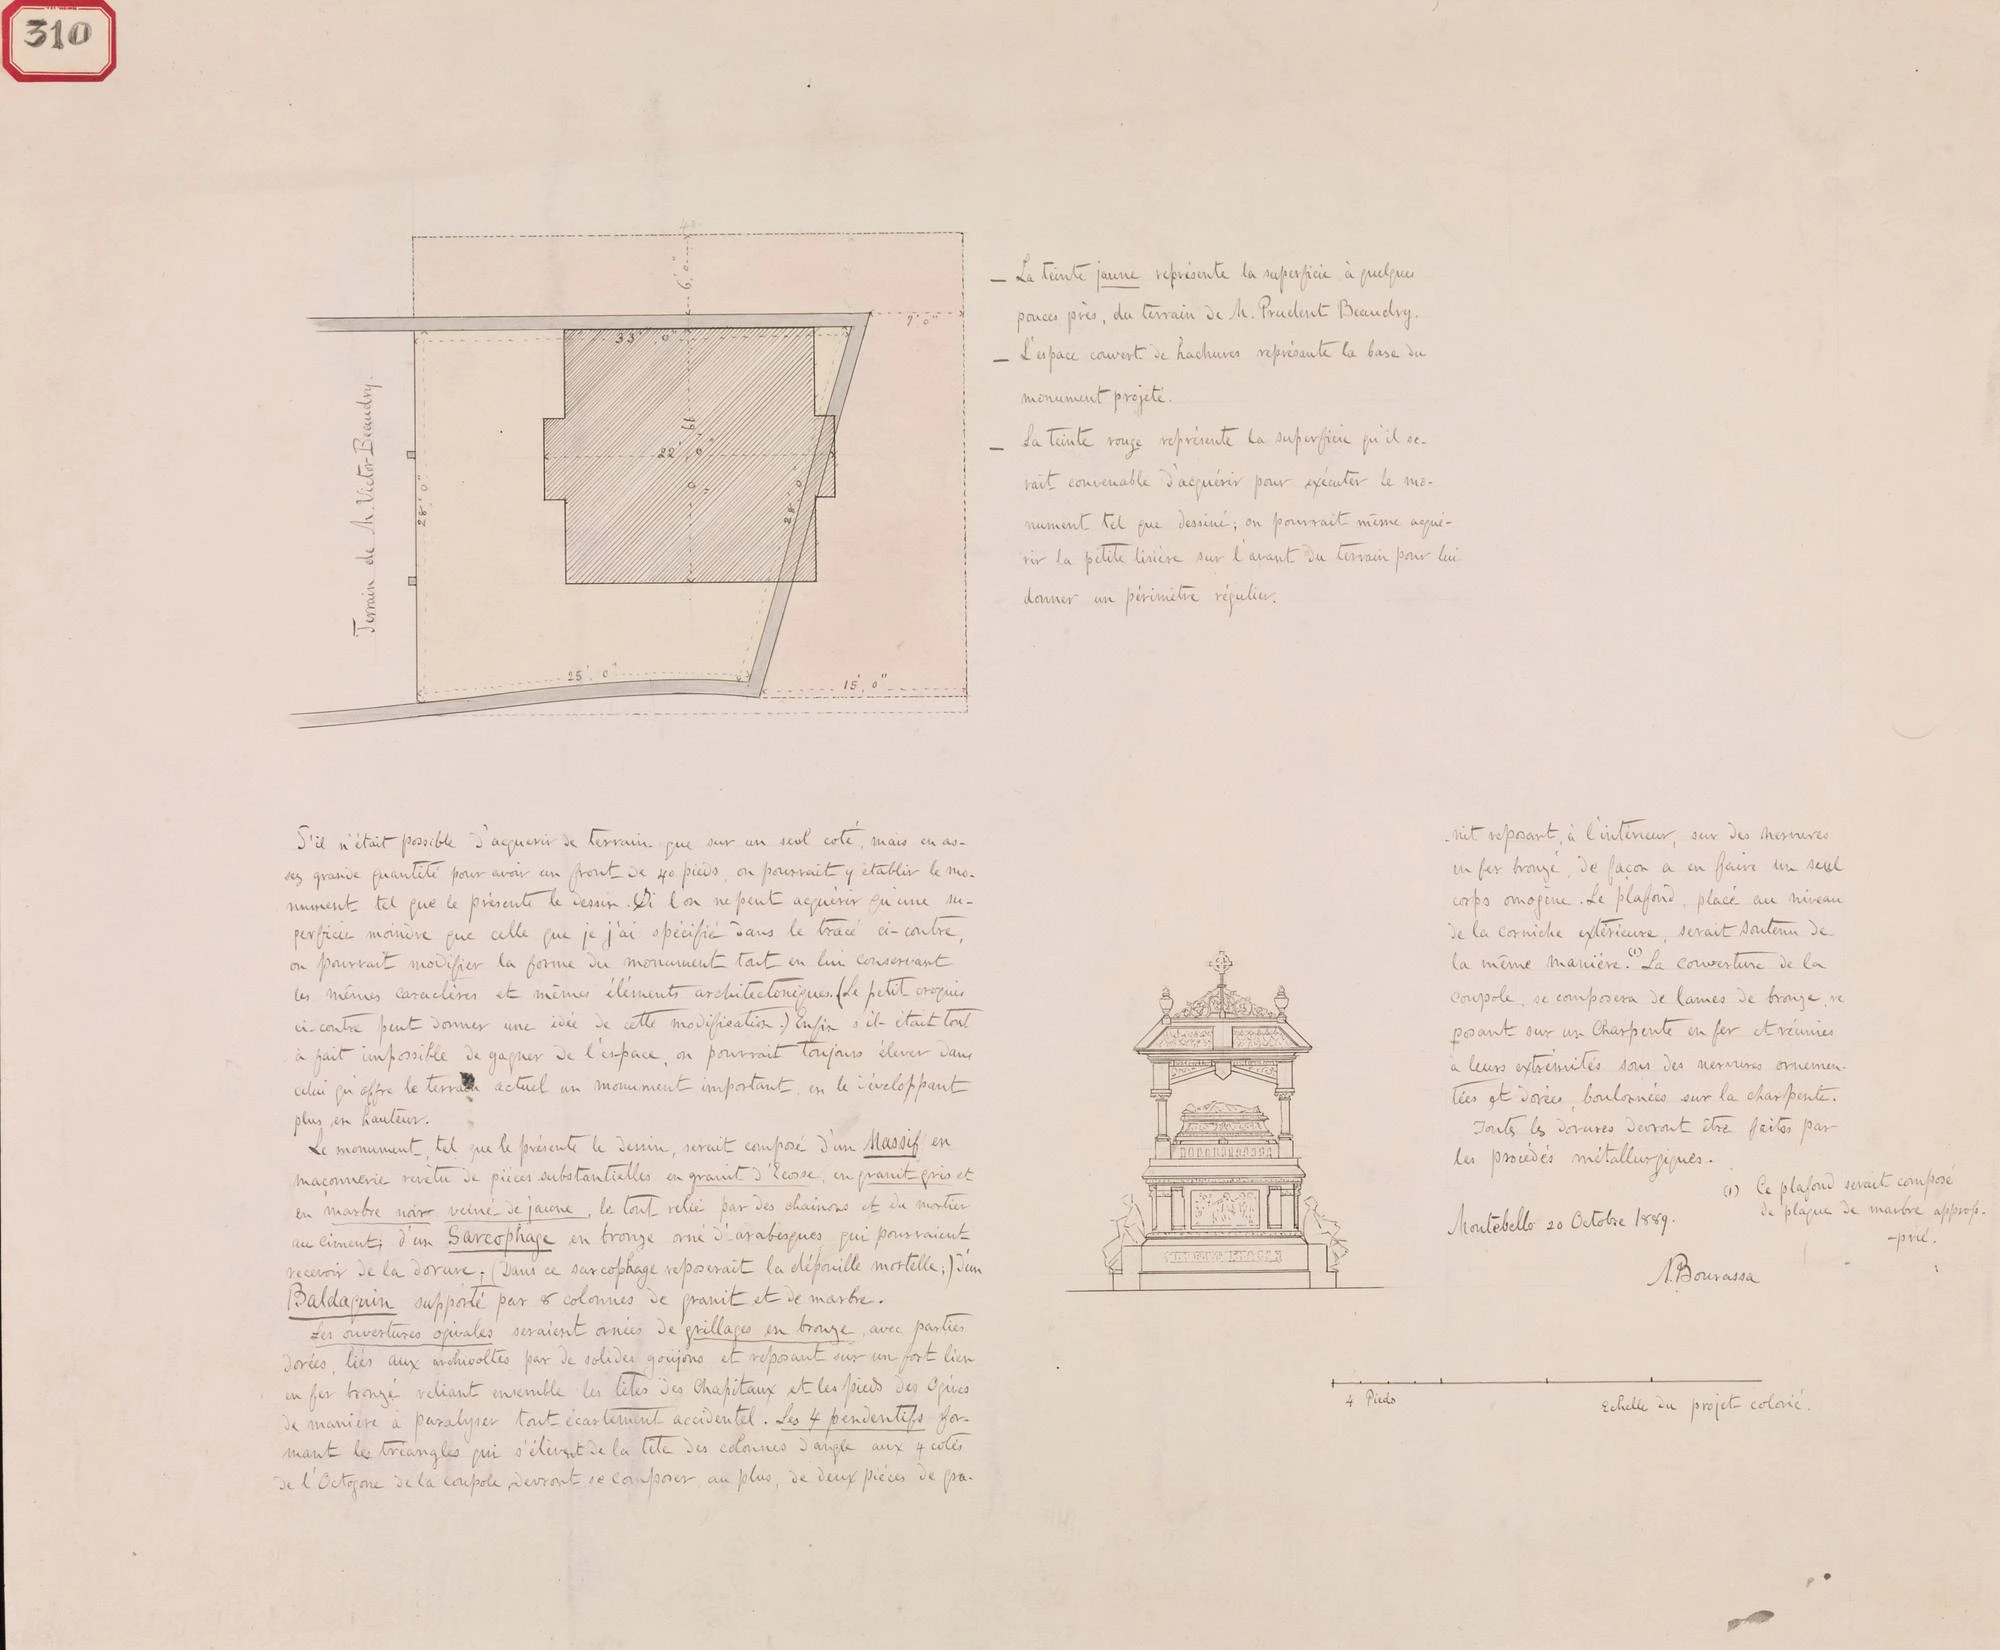 310
40
6'.0"
7'0"
33' 0"
19' 0"
22' 0"
28'. 0"
28' 0"
25'. 0"
15'. 0"
Terrain de M. Victor Beaudry.
— La teinte jaune représente la superficie, à quelques
pouces près, du terrain de M. Prudent Beaudry.
— L'espace couvert de hachures représante la base du
monument projeté.
— La teinte rouge représente la superficie qu'il se-
rait convenable d'acquérir pour exécuter le mo-
nument tel que dessiné; on pourrait même acqué-
rir la petite lisière sur l'avant du terrain pour lui
donner un périmètre régulier.
S'il n'était possible d'acquerir de terrain que sur un seul coté, mais en as-
sez grande quantité pour avoir un front de 40 pieds, on pourrait y établir le mo-
nument tel que le présente le dessin. Si l'on ne peut acquérir qu'une su-
perficie moindre que celle que je j'ai spécifié dans le tracé ci-contre,
on pourrait modifier la forme du monument tout en lui conservant
les mêmes caractères et mêmes éléments architectoniques. (Le petit croquis
ci-contre peut donner une idée de cette modification.) Enfin s'il était tout
à fait impossible de gagner de l'espace, on pourrait toujours élever dans
celui qu'offre le terrain actuel un monument important, en le développant
plus en hauteur.
Le monument, tel que le présente le dessin, serait composé d'un Massif en
maçonnerie revêtu de pièces substantielles en granit d'Ecosse, en granit gris et
en marbre noir veiné de jaune, le tout relié par des chainons et du mortier
au ciment; d'un Sarcophage en bronze orné d'arabesques qui pourraient
recevoir de la dorure; (Dans ce sarcophage reposerait la dépouille mortelle;) d'un
Baldaquin supporté par 8 colonnes de granit et de marbre.
Les ouvertures ogivales seraient ornées de grillages en bronze, avec parties
dorées, liés aux archivoltes par de solides goujons et reposant sur un fort lien
en fer bronzé reliant ensemble les têtes des Chapitaux et les pieds des Ogives
de manière à paralyser tout écartement accidentel. Les 4 pendentifs for-
mant les triangles qui s'élèvent de la tête des colonnes d'angle aux 4 cotés
de l'Octogone de la coupole, devront se composer, au plus, de deux pièces de gra-
nit reposant, à l'intérieur, sur des nervures
en fer bronzé, de façon a en faire un seul
corps omogène. Le plafond, placé au niveau
de la corniche extérieure, serait soutenu de
la même manière. (1) La couverture de la
coupole, se composera de lames de bronze, re
posant sur un Charpente en fer et réunies
à leurs extrémités sous des nervures ornemen-
tées et dorées, boulonnées sur la charpente.
Toutes les dorures devront être faites par
les procédés métallurgiques.
(1) Ce plafond serait composé
de plaque de marbre approp-
-prié.
Montebello 20 Octobre 1889.
N. Bourassa
4 Pieds
Echelle du projet colorié.